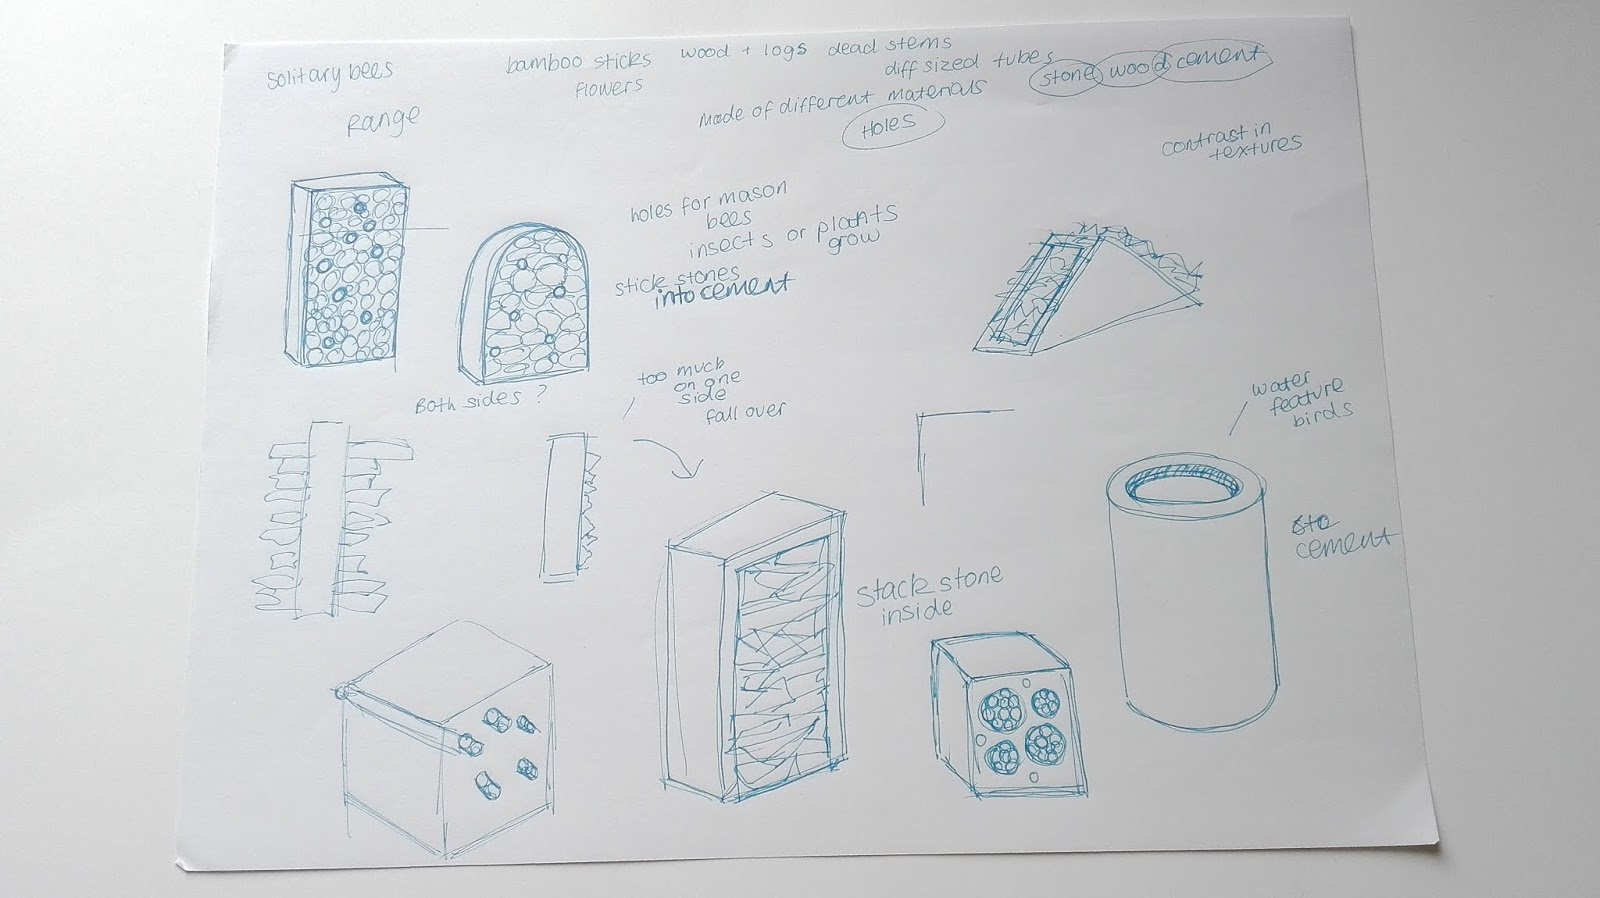 solitary bees
Range
bamboo sticks
flowers
wood + logs
dead stems
diff sized tubes
made of different materials
Holes
stone wood cement
contrast in
textures
holes for mason
bees
insects or plants
grow
stick stones
into cement
Both sides ?
too much
on one
side
fall over
water
feature
birds
cement
stack stone
inside